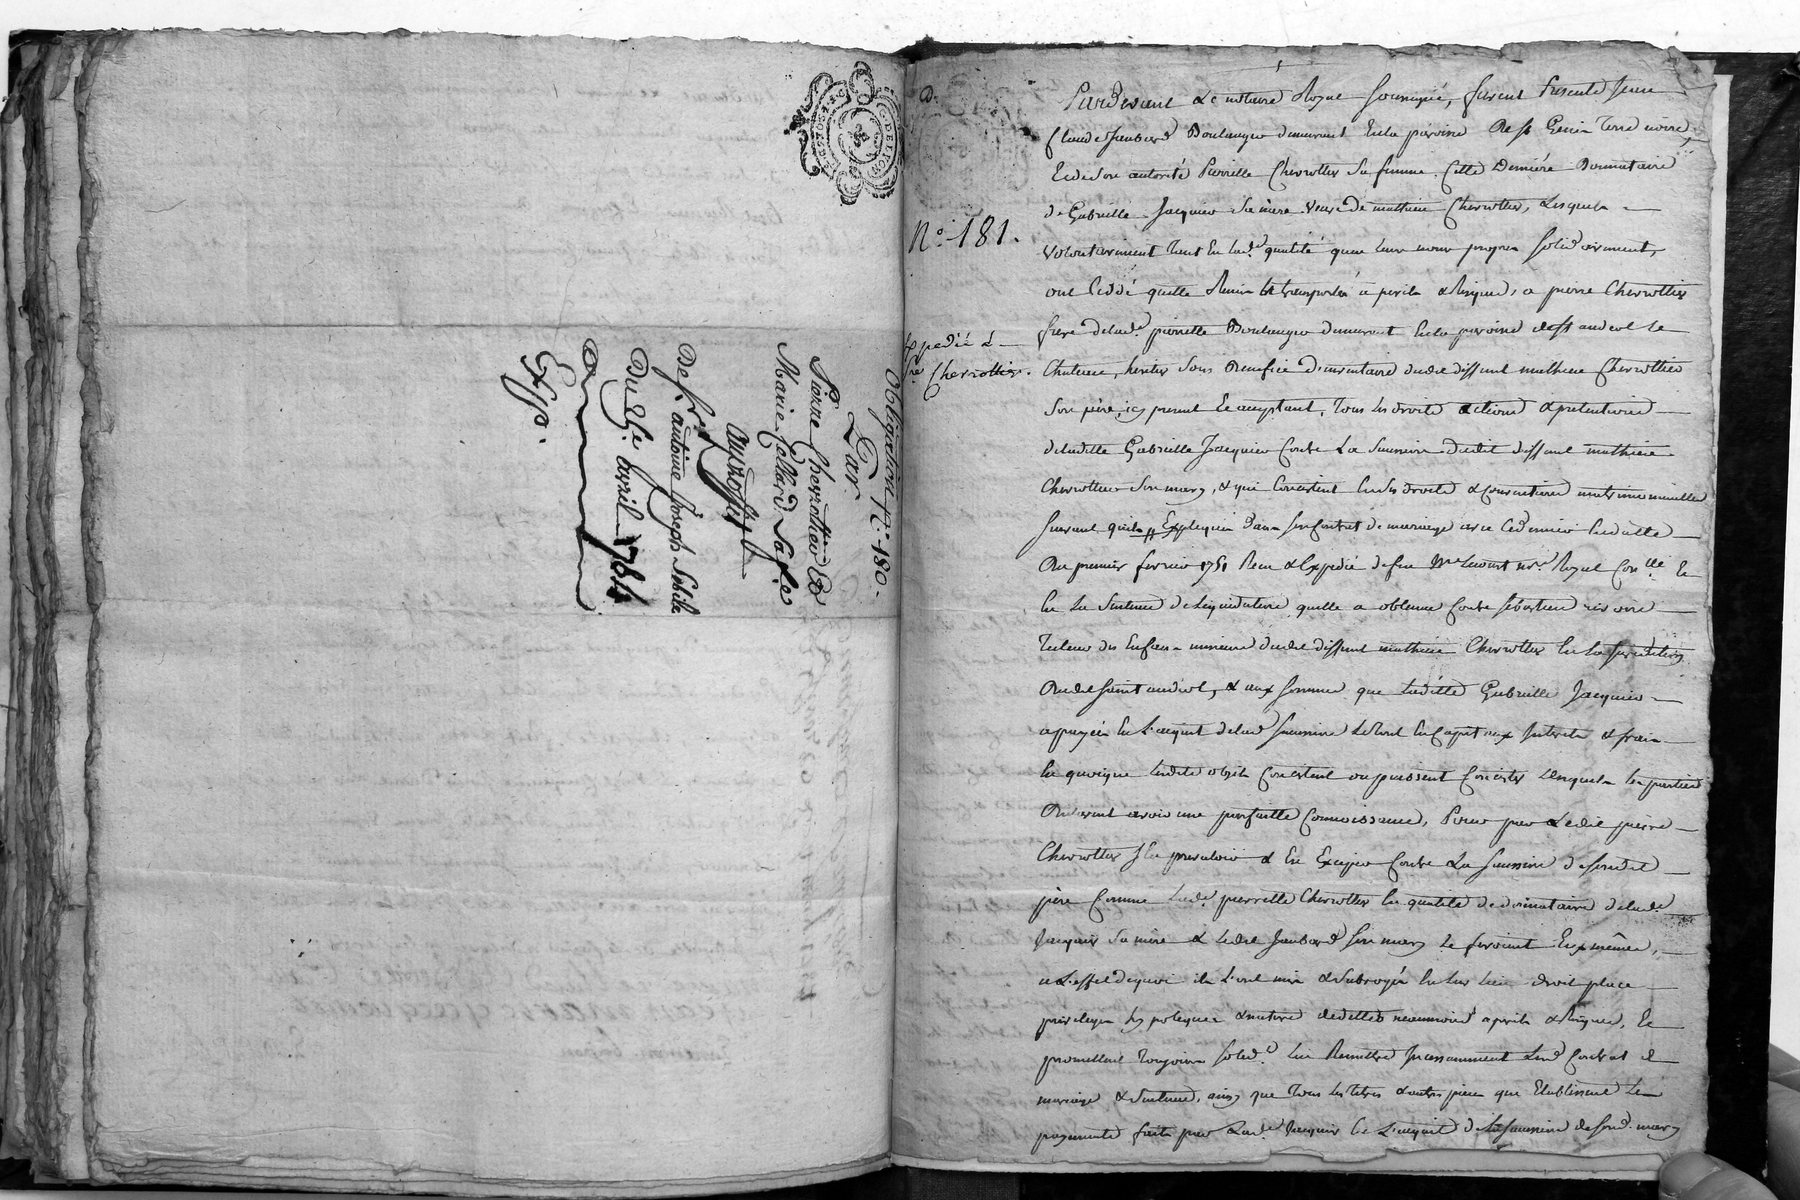 G. DE LYON
Obligation N.° 180.
Par
Pierre Cherrottier &
Marie Collard Sa fe
au proffit
De Sr. antoine Joseph Sibile
Du 2e. avril 1784
Exp.
N.° 181.
Expedié à
Sr. Cherrottier.
Pardevant Le notaire Royal soussigné, furent presents Jean
Claude Jaubard Boulanger demeurant En la paroisse De St Genis Terre noire,
Et de Son autorité Pierrette Cherrottier Sa femme. Cette Derniére Donnataire
de Gabrielle Jacquier Sa mere veuve De mathieu Cherrottier, Lesquels
volontairement tant En lad.e qualité quen leur nom propre solidairement,
ont Cédé quitté Remis et transporté a perils & Risques, a pierre Cherrottier
frere de lad.e pierrette Boulanger demeurant En la paroisse de St andeol le
Chateau, heritier Sous Benefice D'inventaire dudit deffunt mathieu Cherrottier
Son pére, icy present Et acceptant, Tous les droits actions & pretentions
de laditte Gabrielle Jacquier Contre La Succession dudit deffunt mathieu
Cherrottier Son mary, & qui Consistent En Ses droits & Conventions matrimonialles
suivant quils Expliqués Dans Son Contrat de mariage avec Ce dernier En datte
Du premier fevrier 1751 Recu & Expedié
En La Sentence de Liquidation quelle a obtenue Contre Sébastien
Tuteur des Enfans mineurs dudit deffunt mathieu Cherrottier En la jurisdiction
Dudit saint andeol, & aux sommes que laditte Gabrielle Jacquier
a payées En L'acquit de lad.e succession Le tout En Capitaux Interets & frais
En quoique lesdits objets Consistent ou puissent Consister Desquels les parties
ont avoir une parfaitte Connoissance, Pour par Ledit pierre
Cherrottier S'En prevaloir & En Exiger Contre La Succession de Sondit
père Comme Lad.e pierrette Cherrottier En qualité de donnataire de lad.e
Jacquier Sa mère & Ledit Jaubard Son mary Le feroient Eux mêmes,
a L'effet dequoi ils L'ont mis & Subrogé En leur Lieu droit place
privileges hypoteques & nature dicelles neanmoins a perils & Risques, Et
promettent Toujours Solid.t lui Remettre Incessamment Led. Contrat de
mariage & Sentence, ainsy que Tous les titres & autres pieces qui Etablissent Les
payements faits par Lad.e Jacquier En L'acquit de la Succession de Sond. mary